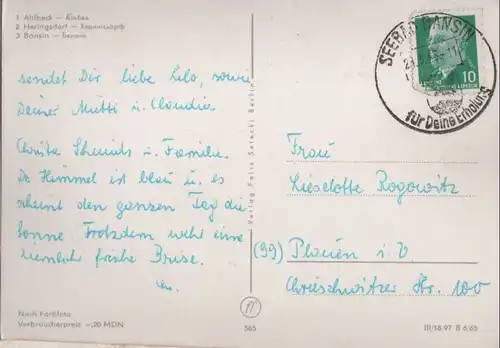 1 Ahlbeck —
2 Heringsdorf —
3 Bansin — Бансин
SEEBAD BANSIN
für Deine Erholung
10
sendet Dir liebe Lilo, sowie
Deiner Mutti u. Claudia
Christa Schmidt u. Familie.
Der Himmel ist blau u. es
scheint den ganzen Tag die
Sonne Trotzdem weht eine
ziemlich frische Brise.
Verlag Felix Setecki Berlin
Frau
Lieselotte Rogowitz
(99) Plauen i. V.
Chrieschwitzer Str. 100
Nach Farbfoto
Verbraucherpreis -,20 MDN
565
III/18/97 B 6/65